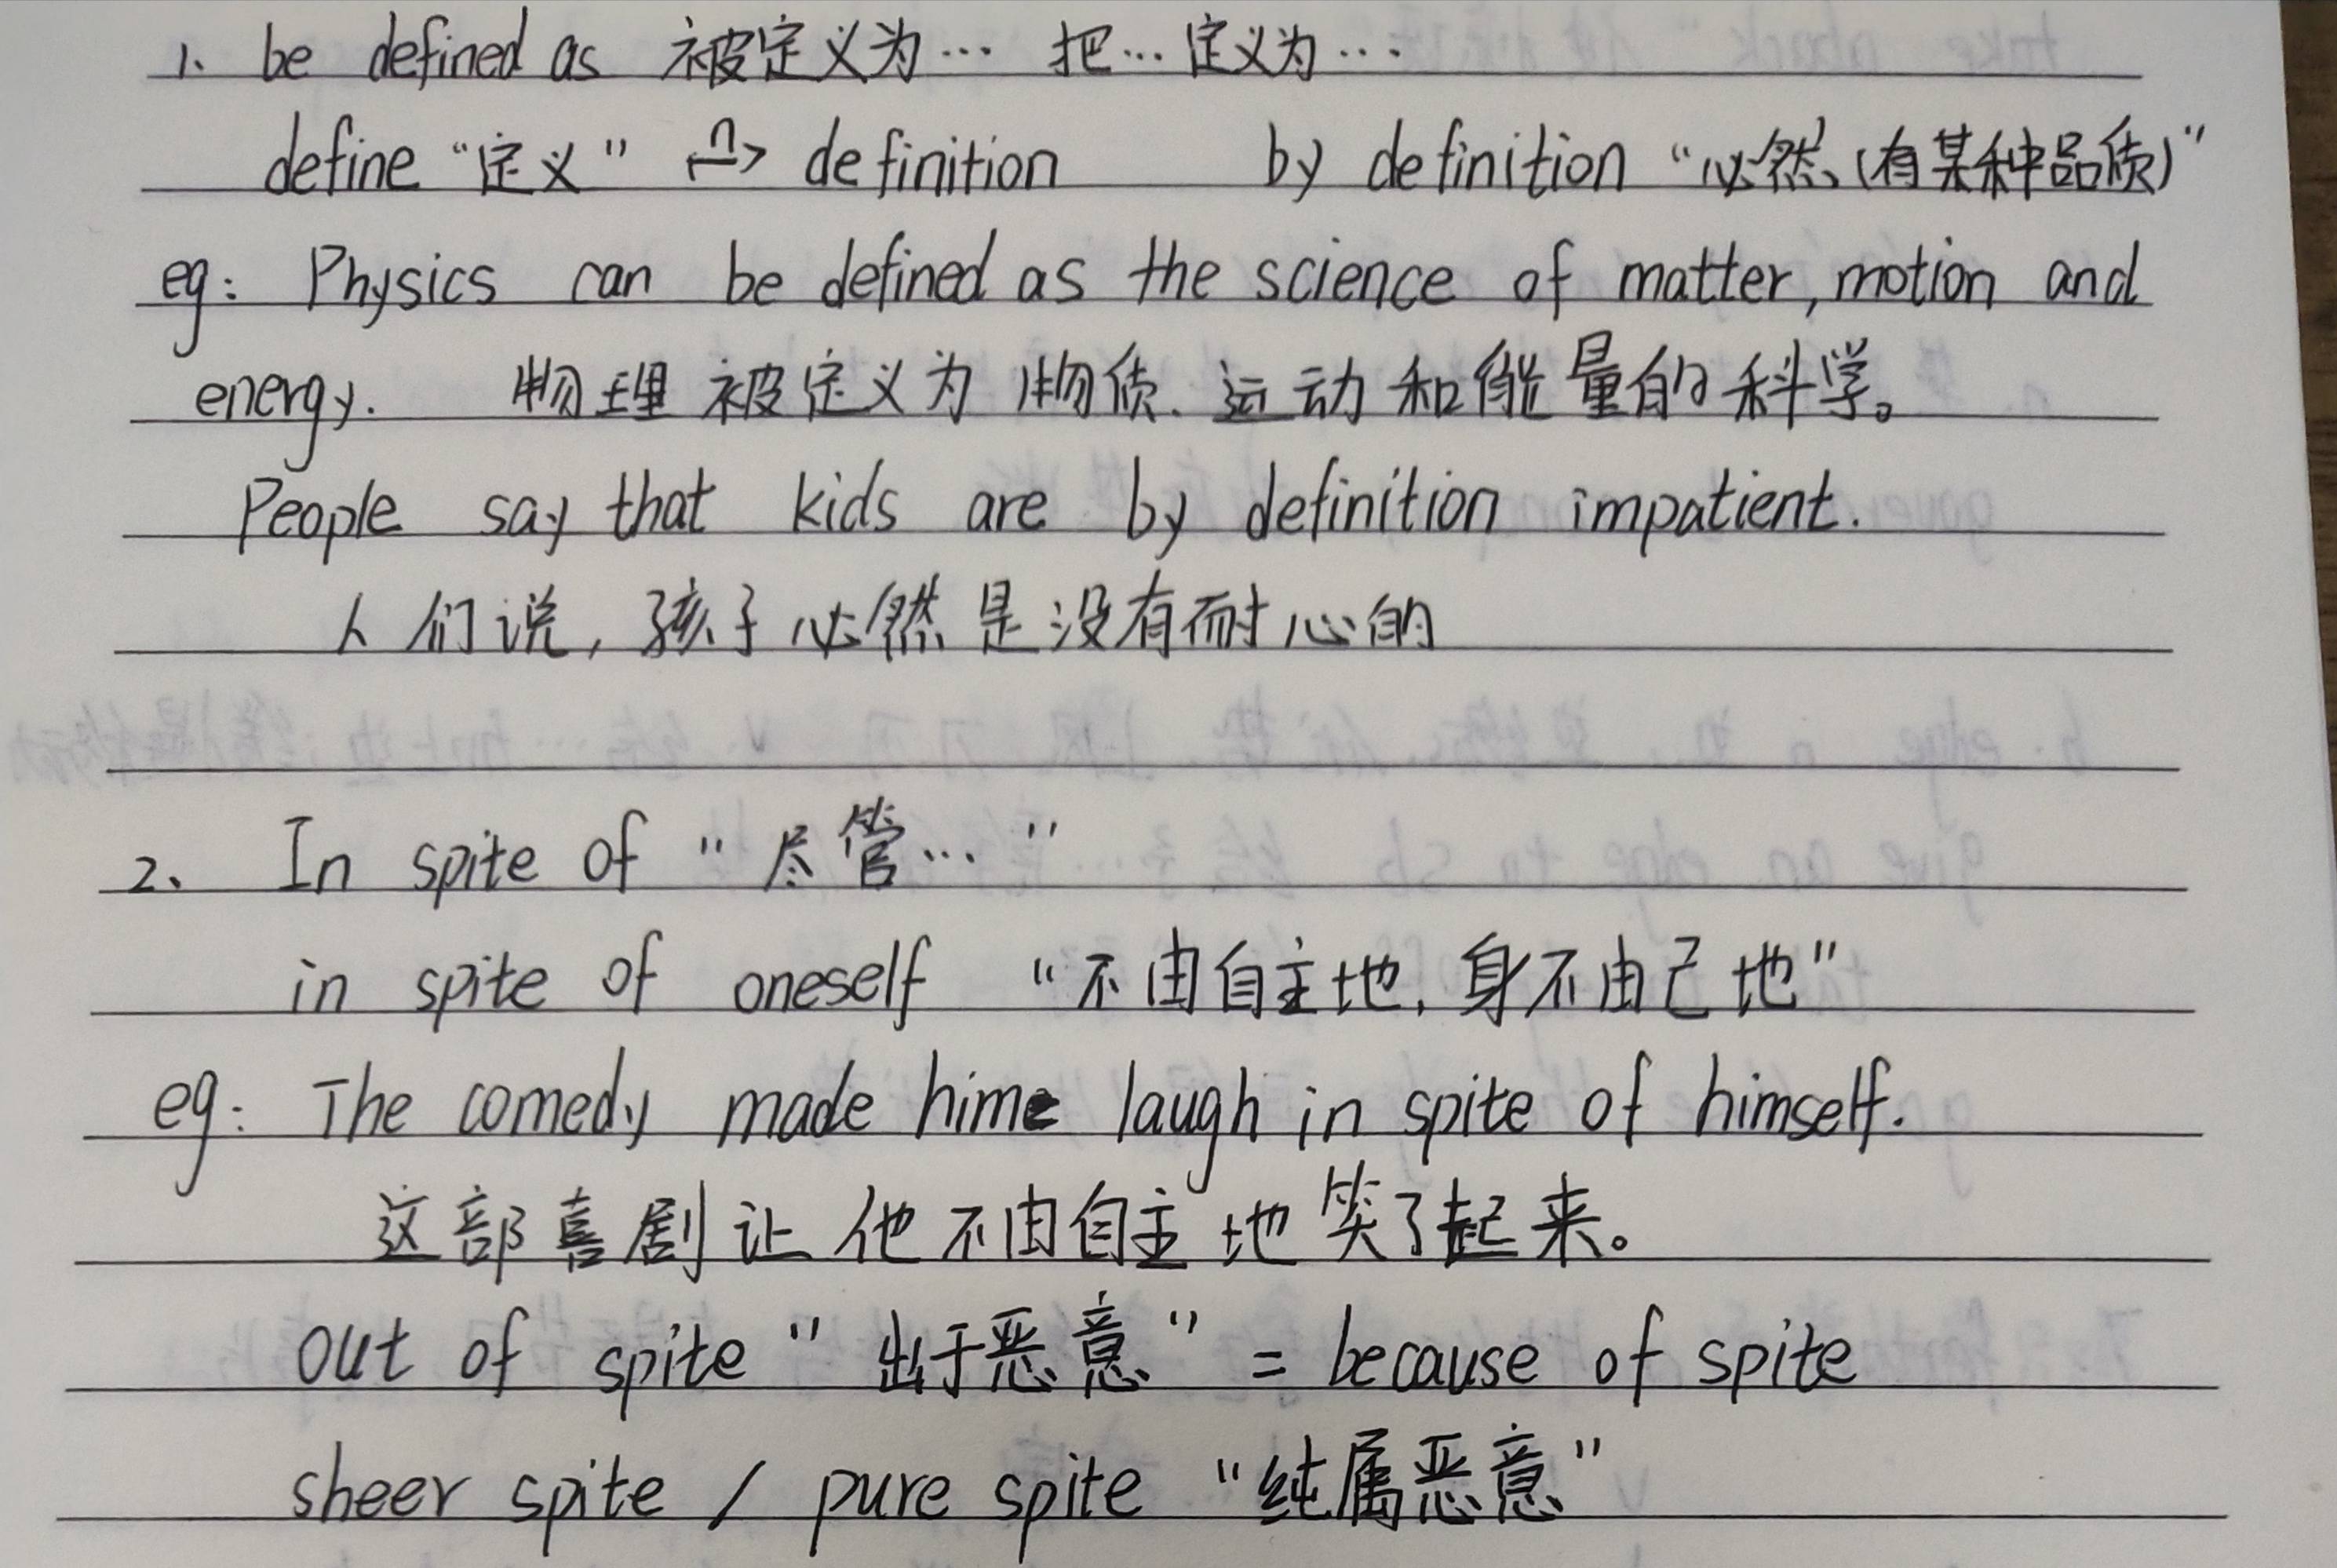 1. be defined as 被定义为… 把…定义为…
define “定义” n→ definition by definition “必然(有某种品质)”
eg: Physics can be defined as the science of matter, motion and
energy. 物理被定义为物质、运动和能量的科学。
People say that kids are by definition impatient.
人们说,孩子必然是没有耐心的
2、 In spite of “尽管…”
in spite of oneself “不由自主地,身不由己地”
eg: The comedy made him laugh in spite of himself.
这部喜剧让他不由自主地笑了起来。
out of spite “出于恶意” = because of spite
sheer spite / pure spite “纯属恶意”